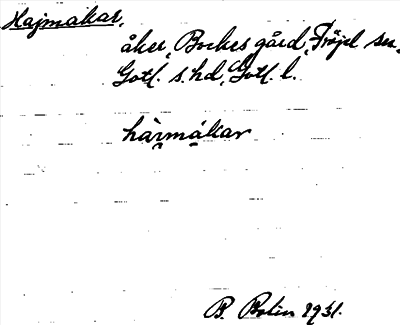 Hajmakar,
åker, Bockes gård, Fröjel sn,
Gotl. s. hd, Gotl. l.
hàrmákar
B. Bolin 1931.